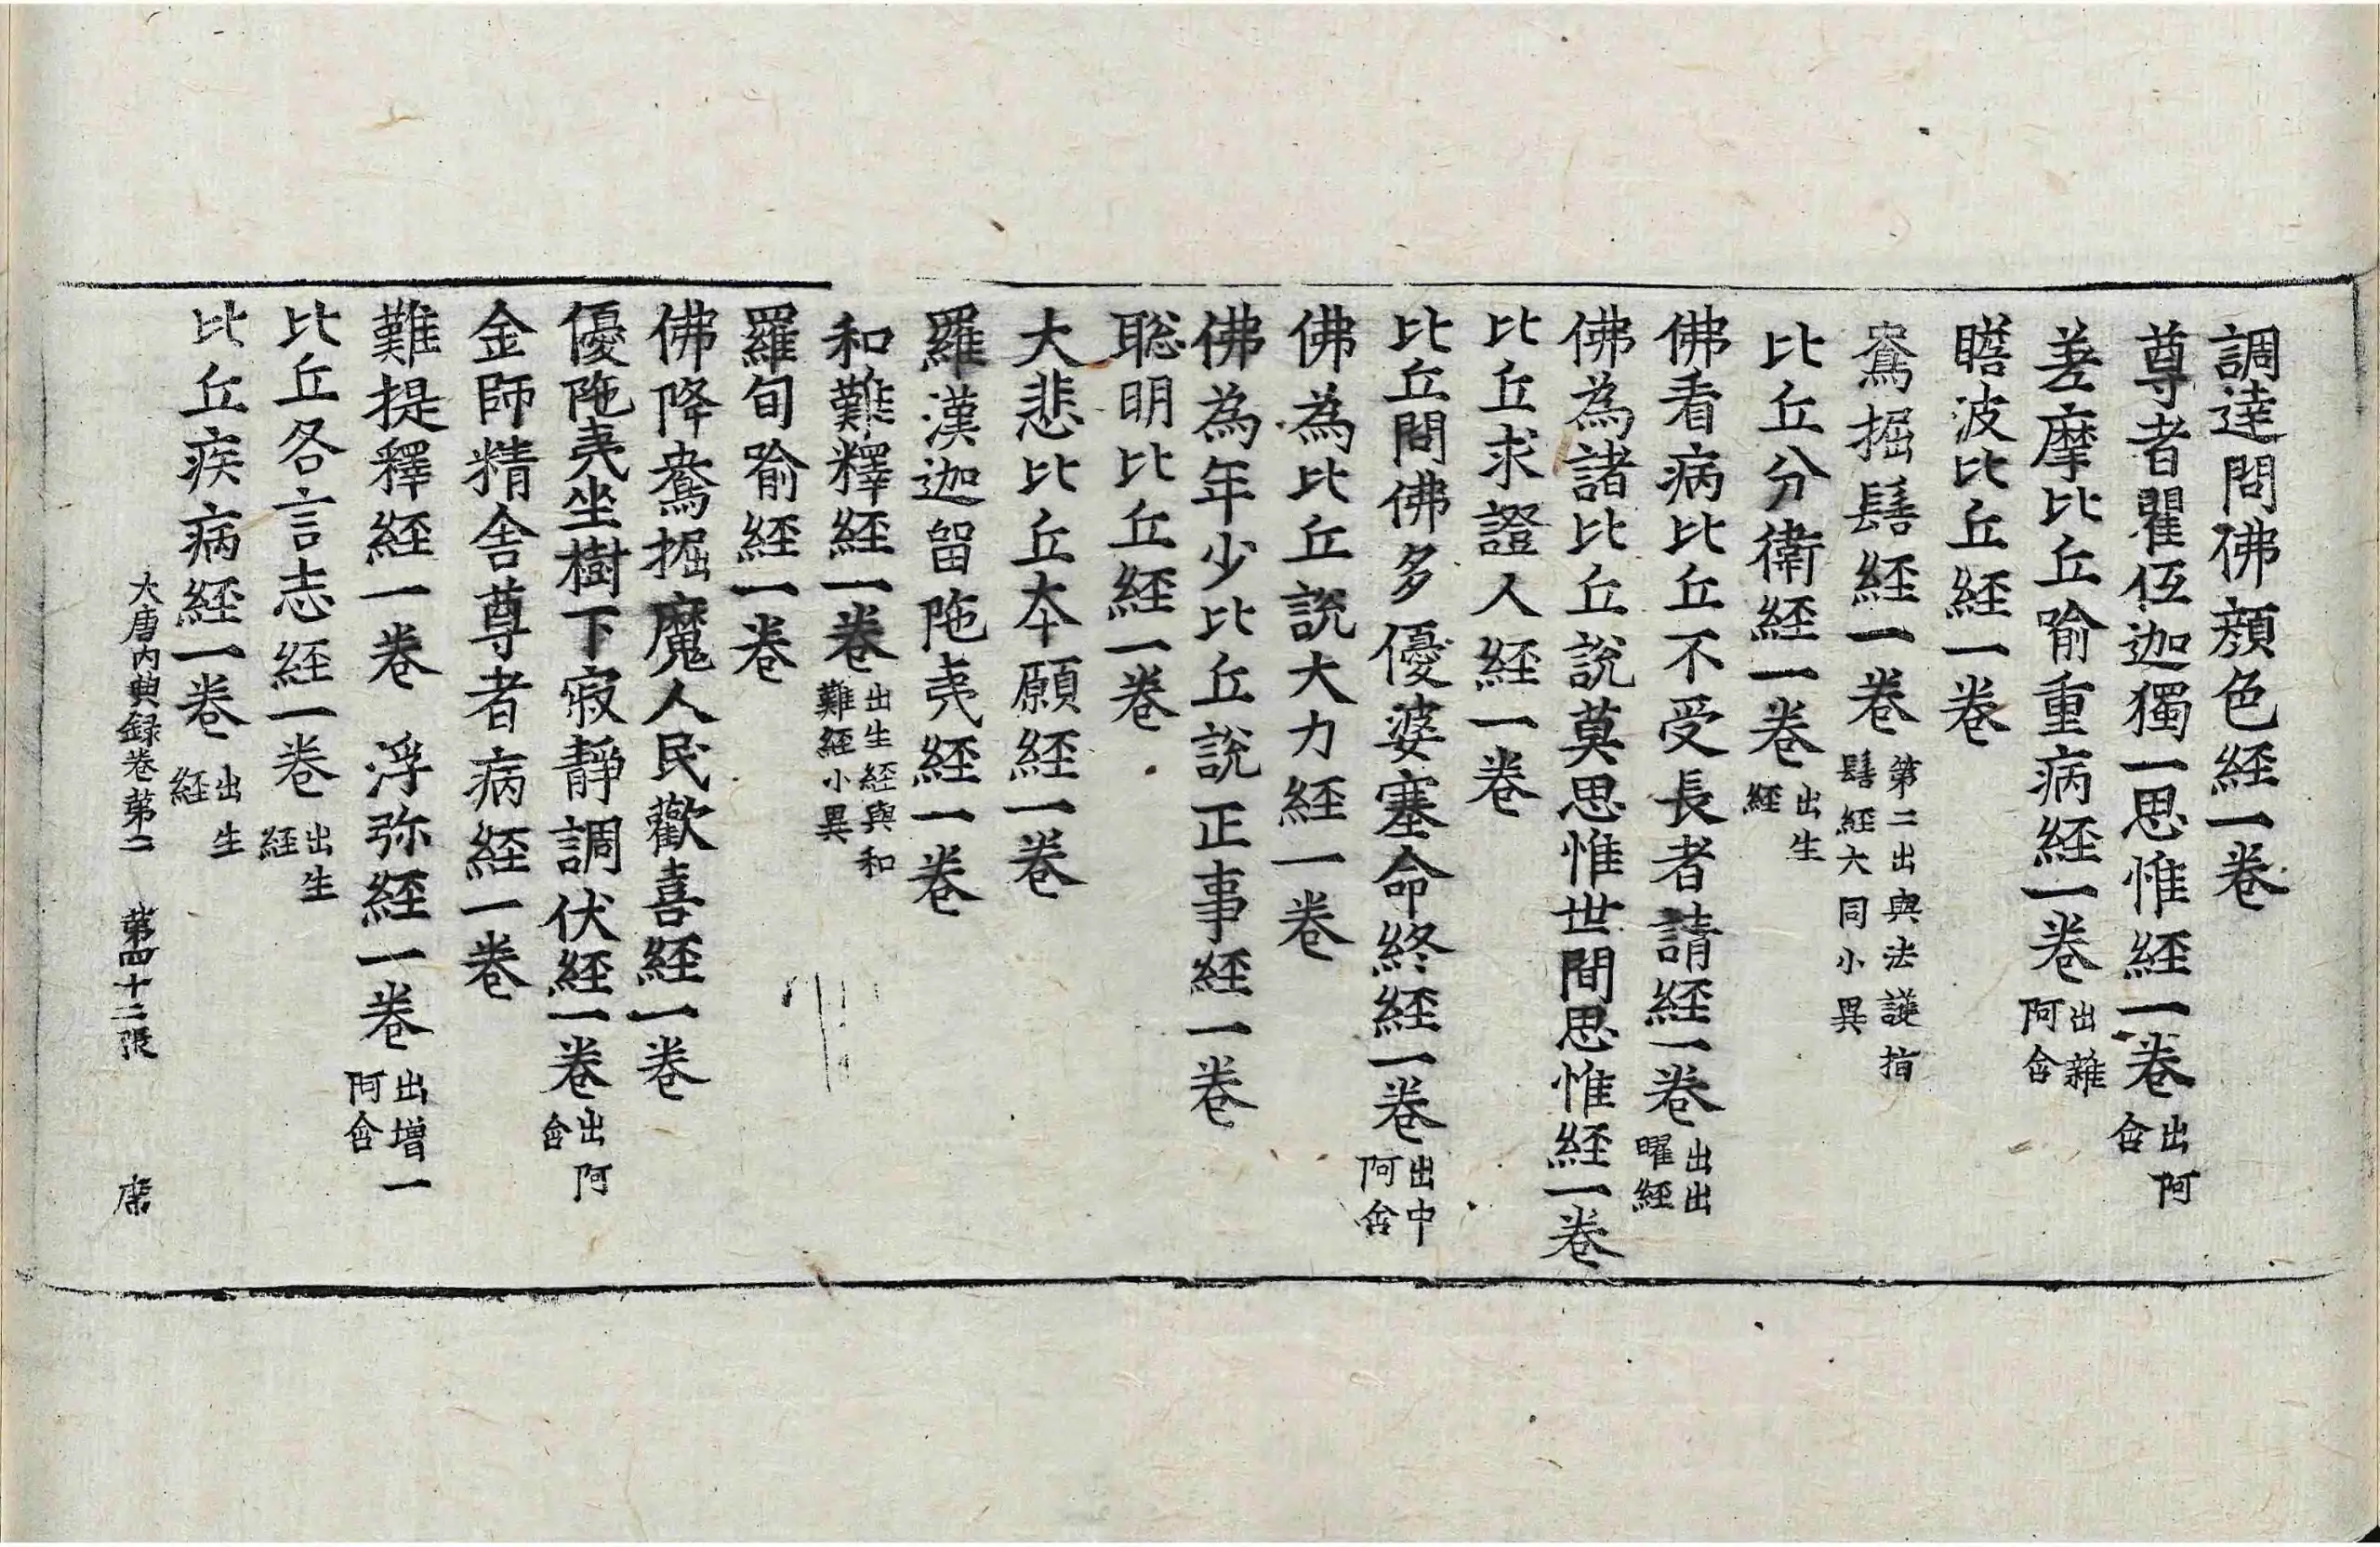 調達問佛顔色経一卷
尊者瞿伍迦獨一思惟経一卷出阿含
差摩比丘喻重病経一卷出雜阿含
瞻波比丘経一卷
鴦掘髻経一卷第二出與法護指髻経大同小異
比丘分衛経一卷出生経
佛看病比丘不受長者請経一卷出出曜経
佛為諸比丘說莫思惟世間思惟経一卷
比丘求證人経一卷
比丘問佛多優婆塞命終経一卷出中阿含
佛為比丘說大力経一卷
佛為年少比丘說正事経一卷
聡明比丘経一卷
大悲比丘本願経一卷
羅漢迦留陁夷経一卷
和難釋経一卷出生経與和難経小異
羅旬喻経一卷
佛降鴦掘魔人民歡喜経一卷
優陁夷坐樹下寂靜調伏経一卷出阿含
金師精舎尊者病経一卷
難提釋経一卷　浮弥経一卷出增一阿含
比丘各言志経一卷出生経
比丘疾病経一卷出生経
大唐内典録卷第二　第四十二張　席